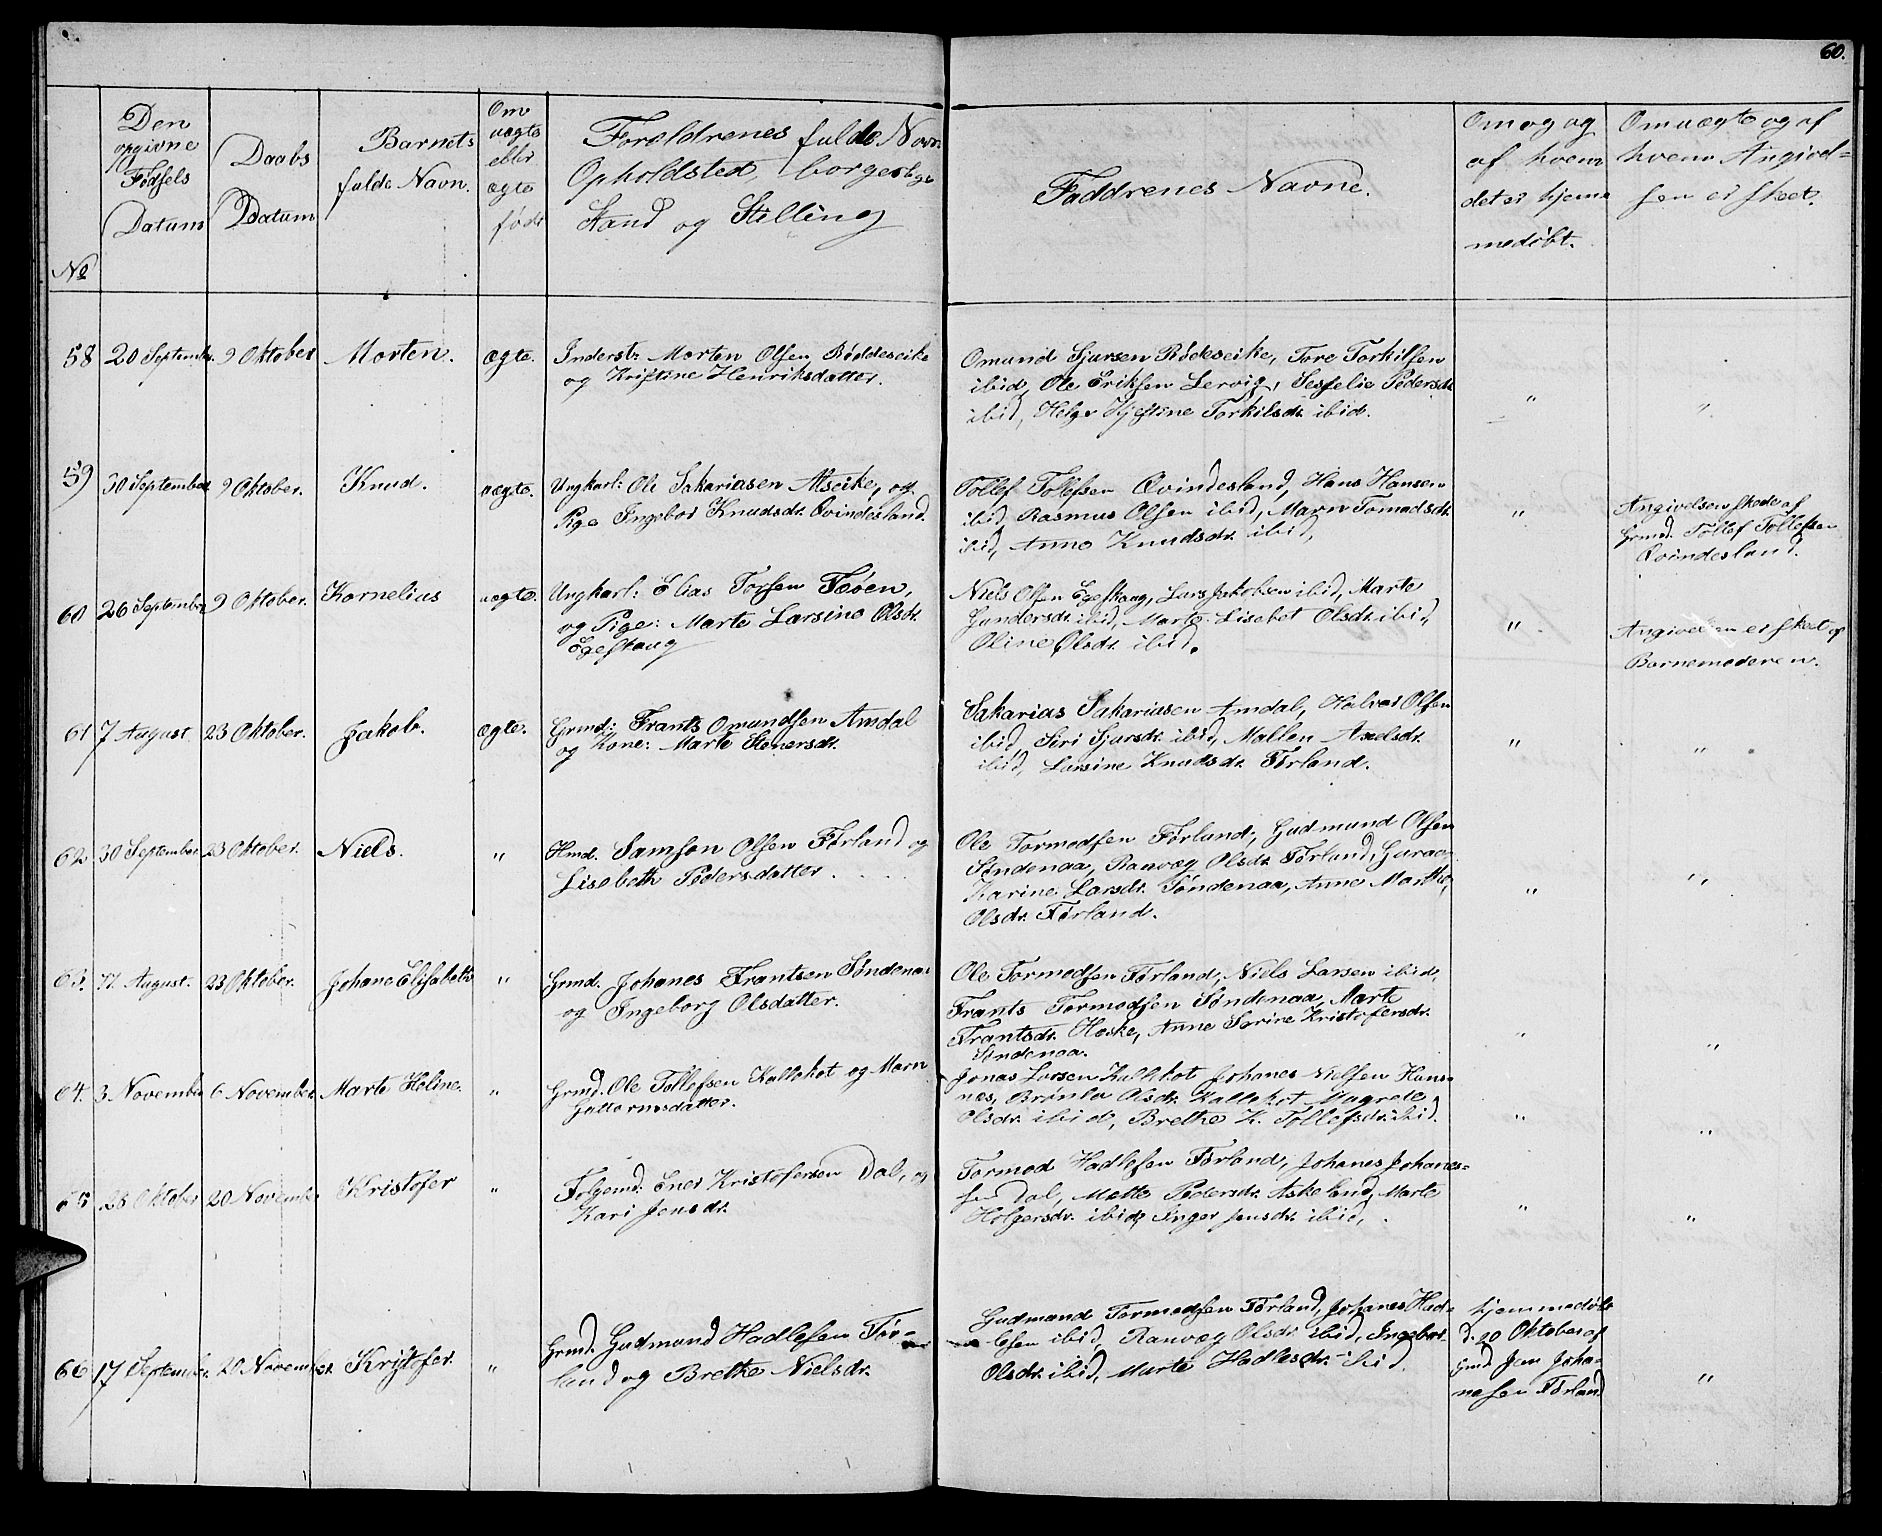 60.
No
Den opgivne Fødsels Datum
Daabs Datum
Barnets fulde Navn.
Om uægte eller ægte født
Forældrenes fulde Navn
Opholdsted, borgerlige
Stand og Stilling
Faddrenes Navne.
Om og og af hvem det er hjemmedøbt.
Om uægte og af hvem Angivelsen er skeet.
58 20 September 9 Oktober Morten. ægte. Inderst: Morten Olsen Røddeseike
og Kristine Henriksdatter.
Omund Sjursen Rødeseike, Tore Torkilsen
ibid, Ole Eriksen Lervig, Sesselie Pedersdr
ibid, Helge Kjestine Torkilsdr. ibid.
" "
59 30 September 9 Oktober. Knud. uægte. Ungkarl: Ole Sakariasen Alseike, og
Pige Ingebor Knudsdr. Qvindesland.
Tollef Tollefsen Qvindesland, Hans Hansen
ibid, Rasmus Olsen ibid, Marn Tomasdr.
ibid, Anne Knudsdr. ibid,
"
Angivelsen skede af
Grmd. Tollef Tollefsen
Qvindesland.
60 26 September 9 Oktober. Kornelius uægte. Ungkarl: Elias Torsen Teøen,
og Pige: Marte Larsine Olsdr.
Egeskaug
Niels Olsen Egeskaug, Lars Jakobsen ibid, Marte
Gundersdr. ibid, Marte Lisebet Olsdr. ibid,
Oline Olsdr. ibid.
"
Angivelsen er skeet af
Barnemoderen.
61 7 August 23 Oktober. Jakob. ægte. Grmd: Frants Omundsen Amdal
og Kone: Marte Stenersdr.
Sakarias Sakariasen Amdal, Halvor Olsen
ibid, Siri Sjursdr. ibid, Mallen Axelsdr.
ibid, Larsine Knudsdr. Førland.
" "
62 30 September 23 Oktober. Niels. " Hmd. Samson Olsen Førland og
Lisebeth Pedersdatter.
Ole Tormodsen Førland, Gudmund Olsen
Søndenaa, Ranvæg Olsdr. Førland, Guraa
Karine Larsdr. Søndenaa, Anne Marthe
Olsdr. Førland.
" "
63. 17 August. 23 Oktober. Johane Elisabeth " Grmd. Johanes Frantsen Søndenaa
og Ingeborg Olsdatter.
Ole Tormodsen Førland, Niels Larsen ibid,
Frants Tormodsen Søndenaa, Marte
Frantsdr. Heske, Anne Sarine Kristofersdr.
Søndenaa.
" "
64. 3 November 6 November. Marte Heline. " Grmd. Ole Tollefsen Kallekot og Marn
Guttormsdatter.
Jonas Larsen Kallekot Johanes Nielsen Hans-
næs, Brønla Olsdr. Kallekot Magrete
Olsdr. ibid, Brethe K. Tollefsdr. ibid.
" "
65 28 Oktober 20 November Kristofer " Folgemd: Ener Kristofersen Dal, og
Kari Jensdr.
Tormod Hadlesen Førland, Johanes Johanes-
sen Dal, Mette Pedersdr. Askeland, Marte
Holgersdr. ibid, Inger Jensdr. ibid,
" "
66 17 September. 20 November. Kristofer. " Grmd. Gudmund Hadlesen Før-
land og Brethe Nielsdr.
Gudmund Tormodsen Førland, Johanes Had-
lesen ibid, Ranvæg Olsdr. ibid, Ingebor
Olsdr. ibid, Marte Hadlesdr. ibid.
hjemmedøbt
d. 20 Oktober af
Grmd Jens Joha-
nesen Førland
"